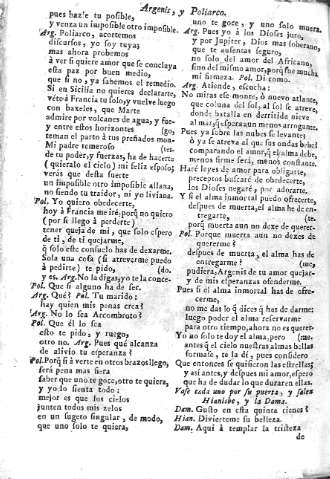 Argenis, y Poliarco.
pues haz'e tu posible,
y venza un impossible otro imposible.
Arg. Poliarco, acortemos
discursos, yo soy tuya;
mas ahora probemos
à ver si quiere amor que se concluya
esta paz por buen medio,
que si no, ya sabemos el remedio.
Si en Sicilia no quieres declararte,
vete à Francia tu solo, y vuelve luego
con baxeles, que Marte
admire por volcanes de agua, y fuego,
y entre estos horizontes
teman el parto à tus preñados montes.
Mi padre temeroso
de tu poder, y fuerzas, ha de hacerte
(quieralo el cielo) mi feliz esposo;
veràs que desta suerte
un imposible otro imposible allana,
no siendo tu traidor, ni yo liviana.
Pol. Yo quiero obedecerte,
hoy à Francia me irè, porq no quiero
(por si llego à perderte)
tener queja de mi, que solo espero
de ti, de ti quejarme,
q solo este consuelo has de dexarme.
Sola una cosa (si atreverme puedo
à pedirte) te pido,
y es. Arg. No la digas, yo te la concedo.
Pol. Que si alguno ha de ser.
Arg. Què? Pol. Tu marido:
hay quien mis penas crea?
Arg. No lo sea Arcombroto?
Pol. Que èl lo sea
esto te pido, y ruego,
otro no. Arg. Pues què alcanza
de alivio tu esperanza?
Pol. Porq si à verte en otros brazos llego,
serà pena mas fiera
saber que uno te goce, otro te quiera,
y yo lo sienta todo;
mejor es que los cielos
junten todos mis zelos
en un sugeto singular, de modo,
que uno solo te quiera,
uno te goce, y uno solo muera.
Arg. Pues yo à los Dioses juro,
y por Jupiter, Dios mas soberano,
que te ausentas seguro,
no solo del amor del Africano,
sino del mismo amor, porq sè mucha
mi firmeza. Pol. Dì como.
Arg. Atiende, escucha:
No miras ese monte, ò nuevo atlante,
que coluna del sol, al sol se atreve,
donde batalla en derretida nieve
al mar, q espera aun menos arrogante.
Pues ya sobre las nubes se levante,
ò ya se atreva al que sus ondas bebe,
comparando el amor, q el alma debe,
menos firme serà, menos constante.
Harè leyes de amor para obligarte,
preceptos buscarè de obedecerte,
los Dioses negarè, por adorarte.
Y si el alma inmortal puedo ofrecerte,
despues de muerta, el alma he de entregarte,
porq muerta aun no dexe de quererte.
Pol. Porque muerta aun no dexes de
quererme?
despues de muerta, el alma has de
entregarme?
pudiera, Argenis de tu amor quejarme,
y de mis esperanzas ofenderme.
Pues si el alma inmortal has de ofrecerme,
no me das lo q dices q has de darme;
luego poder el alma reservarme
para otro tiempo, ahora no es quererme.
Yo no solo te doy el alma, pero
antes q el cielo nuestras almas bellas
formase, te la dì, pues considero
Que entonces se quisieron las estrellas;
y asi antes, y despues mi amor, espero
que ha de dudar lo que duraren ellas.
Vase cada uno por su puerta, y salen
Hianisbe, y la Dama.
Dam. Gusto en esta quinta tienes?
Hian. Divierteme su belleza.
Dam. Aquì à templar la tristeza
de